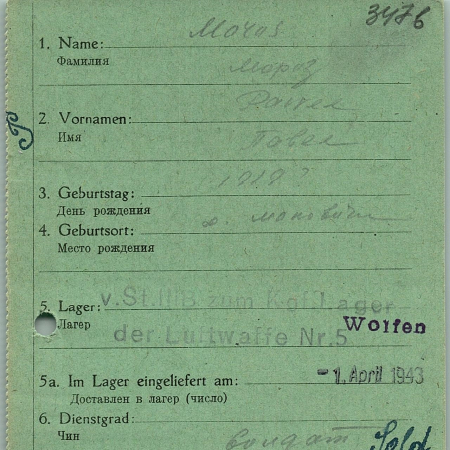 3476
1. Name:
Фамилия
Мороз
2. Vornamen:
Имя
Павел
3. Geburtstag:
День рождения
4. Geburtsort:
Место рождения
5. Lager: v. St. IIIB zum Kgf. Lager
Лагер
der Luftwaffe Nr. 5 Wolfen
5a. Im Lager eingeliefert am: -1. April 1943
Доставлен в лагер (число)
6. Dienstgrad:
Чин
солдат Sold